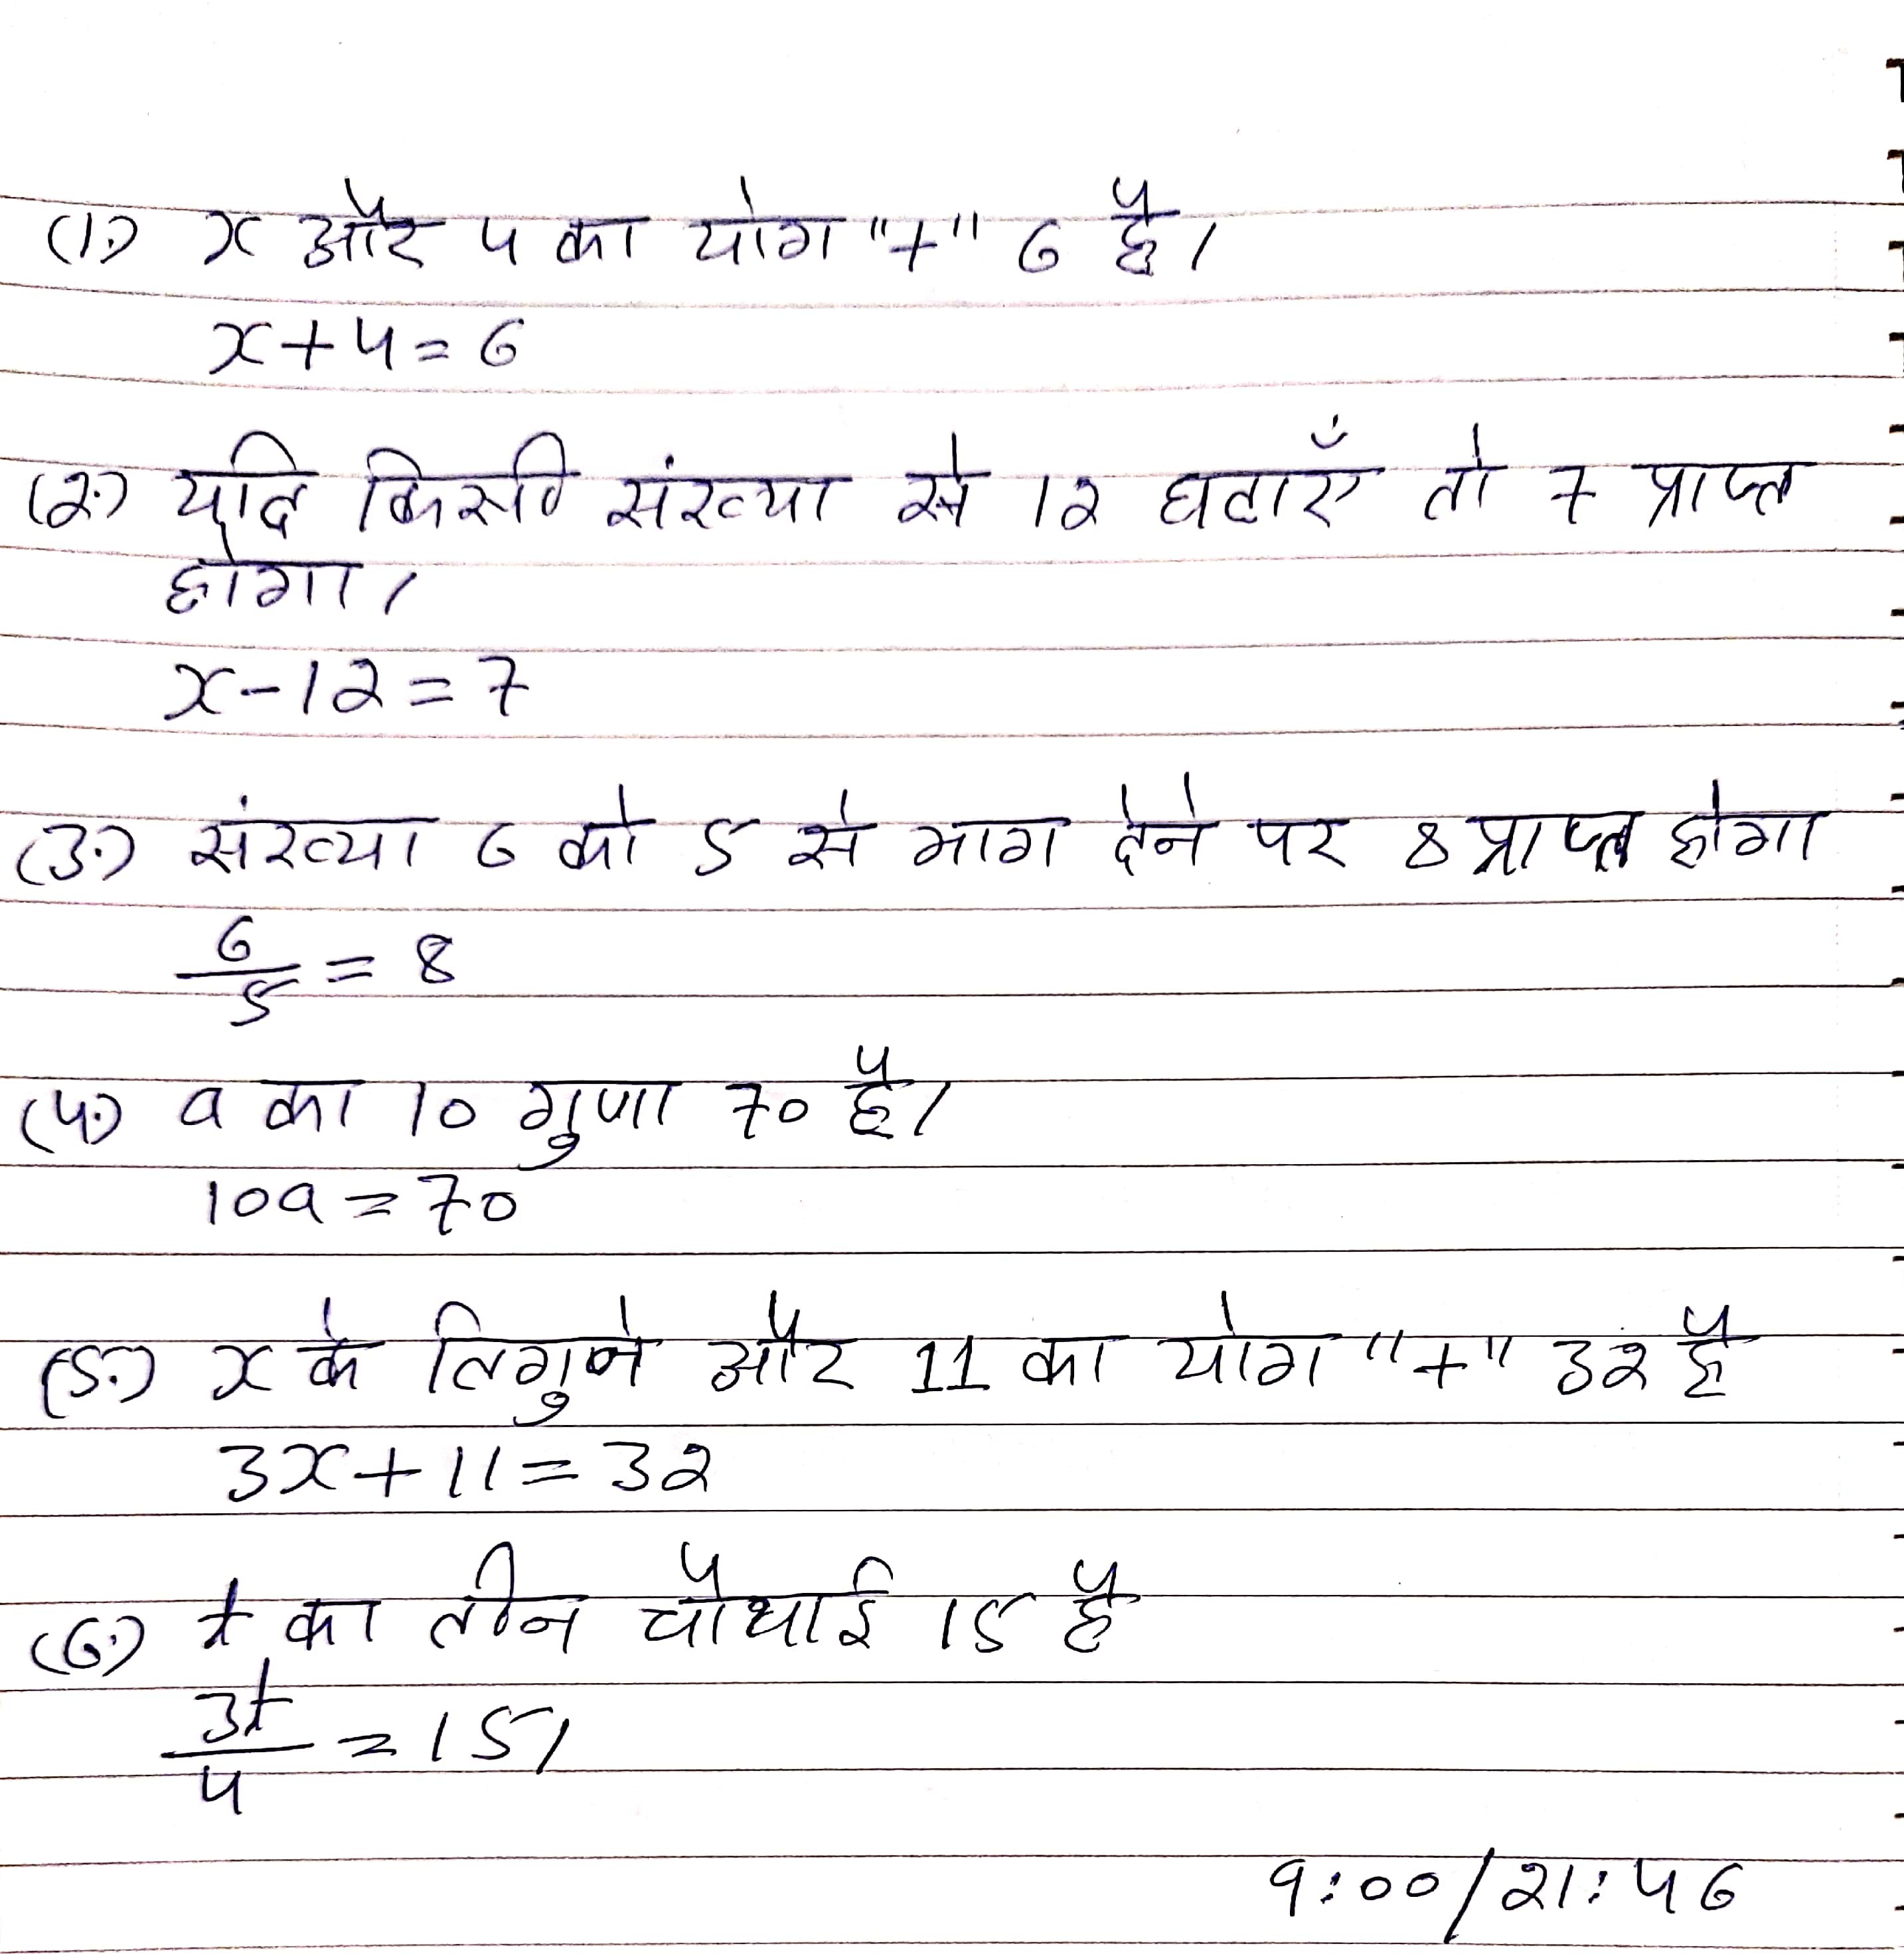 (1.) x और 4 का योग "+" 6 है।
x+4=6
(2.) यदि किसी संख्या से 12 घटाएँ तो 7 प्राप्त
होगा।
x-12=7
(3.) संख्या 6 को 5 से भाग देने पर 8 प्राप्त होगा
6/5 = 8
(4.) a का 10 गुणा 70 है।
10a=70
(5.) x के तिगुने और 11 का योग "+" 32 है
3x+11=32
(6.) t का तीन चौथाई 15 है
3t/4 = 15/
9:00/21:46